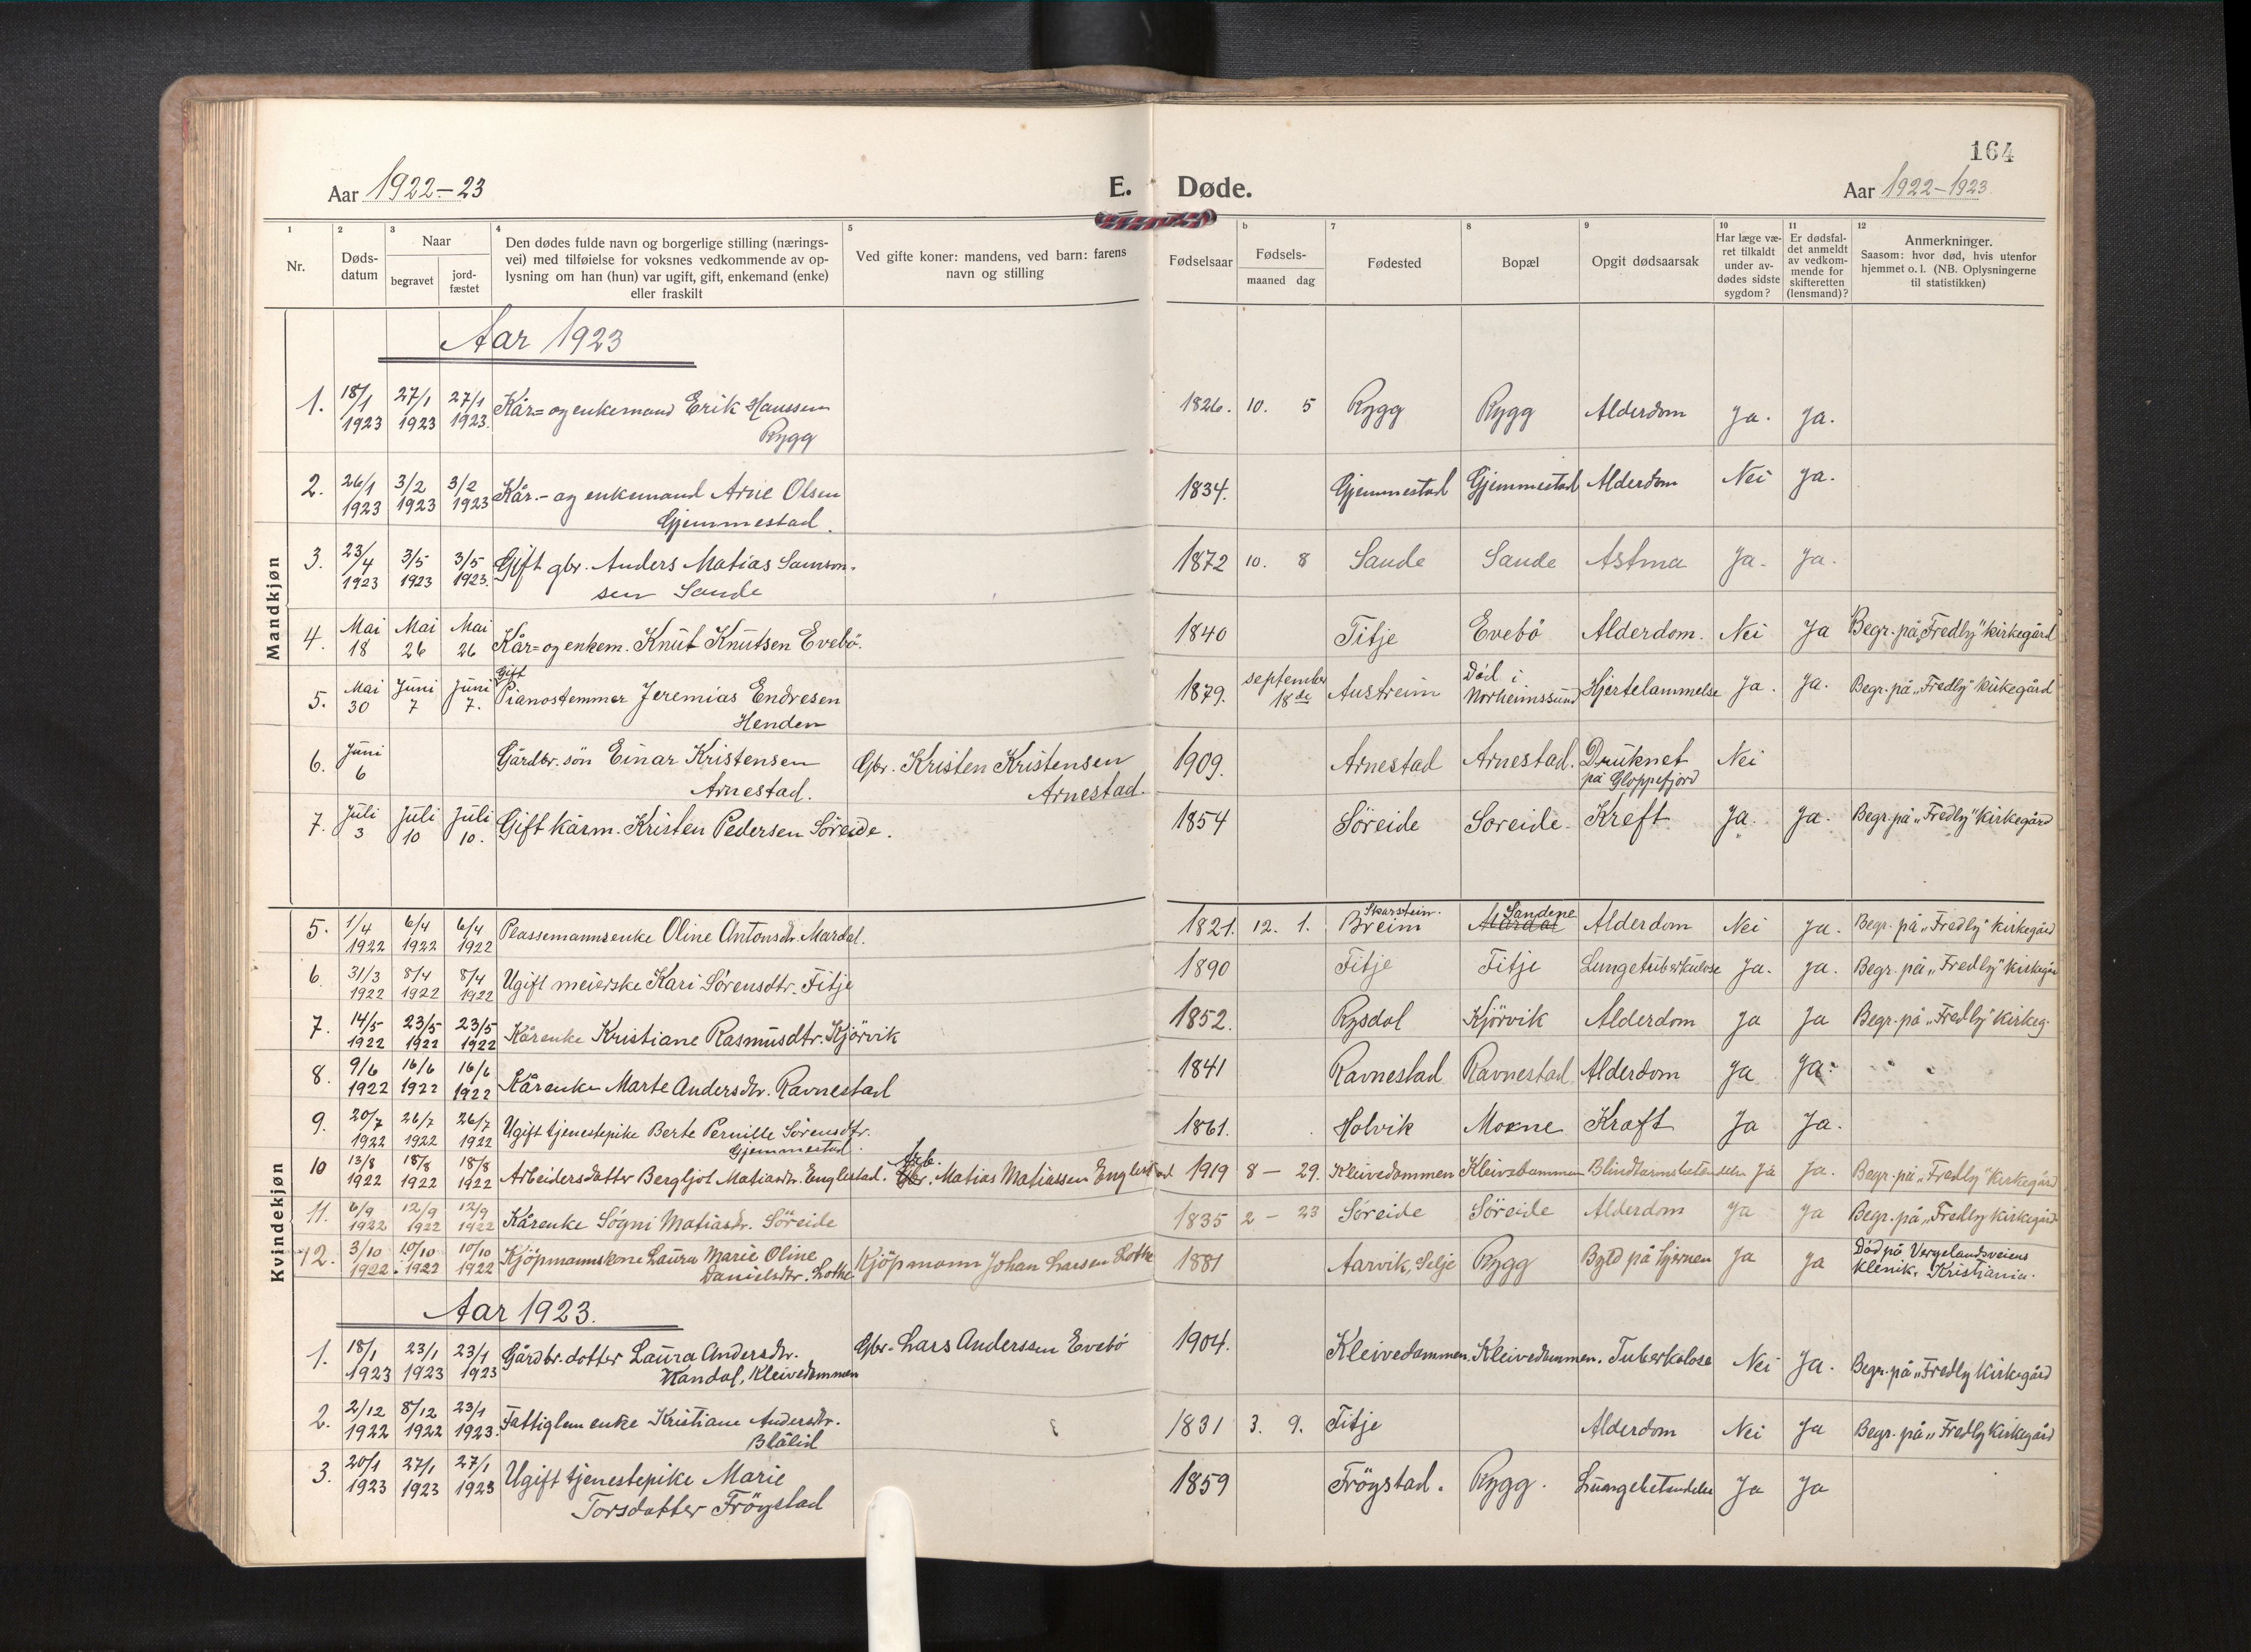 164
Aar 1922-23
E. Døde.
Aar 1922-1923
1 2 3 4 5 b 7 8 9 10 11 12
Nr.
Døds-
datum
Naar
begravet
jord-
fæstet
Den dødes fulde navn og borgerlige stilling (nærings-
vei) med tilføielse for voksnes vedkommende av op-
lysning om han (hun) var ugift, gift, enkemand (enke)
eller fraskilt
Ved gifte koner: mandens, ved barn: farens
navn og stilling
Fødselsaar
Fødsels-
maaned dag
Fødested
Bopæl
Opgit dødsaarsak
Har læge væ-
ret tilkaldt
under av-
dødes sidste
sygdom?
Er dødsfal-
det anmeldt
av vedkom-
mende for
skifteretten
(lensmand)?
Anmerkninger.
Saasom: hvor død, hvis utenfor
hjemmet o. l. (NB. Oplysningerne
til statistikken)
Mandkjøn
Aar 1923
1. 18/1 1923 27/1 1923 27/1 1923. Kår= og enkemand Erik Hanssen
Rygg
1826. 10. 5 Rygg Rygg Alderdom Ja. Ja.
2. 26/1 1923 3/2 1923 3/2 1923 Kår.- og enkemand Arne Olsen
Gjemmestad.
1834. Gjemmestad Gjemmestad Alderdom Nei Ja.
3. 23/4 1923 3/5 1923 3/5 1923. Gift gbr. Anders Matias Samson-
sen Sande
1872 10. 8 Sande Sande Astma Ja. Ja.
4. Mai 18 Mai 26 Mai 26 Kår= og enkem. Knut Knutsen Evebö.
1840 Fitje Evebö Alderdom. Nei Ja Begr. på „Fredly" kirkegård
5. Mai 30 Juni 7 Juni 7. Gift
Pianostemmer Jeremias Endresen
Henden
1879. september 18de Austreim Död i Norheimssund Hjertelammelse Ja. Ja. Begr. på „Fredly" kirkegård
6. Juni 6 Gårdbr. sön Einar Kristensen
Arnestad.
Gbr. Kristen Kristensen
Arnestad.
1909. Arnestad Arnestad. Druknet
på Gloppefjord
Nei
7. Juli 3 Juli 10 Juli 10. Gift kårm. Kristen Pedersen Söreide.
1854 Söreide Soreide Kreft Ja. Ja. Begr. på „Fredly" kirkegård
Kvindekjøn
5. 1/4 1922 6/4 1922 6/4 1922 Plassemannsenke Oline Antonsdtr. Mardal.
1821. 12. 1. Skarstein. Breim Sandene Mardal Alderdom Nei Ja. Begr. på „Fredly" kirkegård
6. 31/3 1922 8/4 1922 8/4 1922 Ugift meierske Kari Sörensdtr. Fitje
1890 Fitje Fitje Lungetuberkulose Ja. Ja. Begr. på „Fredly" kirkegår
7. 14/5 1922 23/5 1922 23/5 1922 Kårenke Kristiane Rasmusdtr. Kjörvik
1852. Rysdal Kjörvik Alderdom Ja Ja Begr. på „Fredly" kirkeg.
8. 9/6 1922 16/6 1922 16/6 1922 Kårenke Marte Andersdtr. Ravnestad
1841 Ravnestad Ravnestad Alderdom Ja Ja.
9. 20/7 1922 26/7 1922 26/7 1922 Ugift tjenestepike Berte Pernille Sörensdtr.
Gjemmestad.
1861. Holvik Mokne Kræft Ja Ja.
10 13/8 1922 18/8 1922 18/8 1922 Arbeidersdatter Bergljot Matiasdtr. Englestad.
Arb.
Gbr. Matias Matiassen Englestad
1919 8 – 29. Kleivedammen Kleivedammen Blindtarmsbetændelse Ja Ja. Begr. på „Fredly" kirkegård
11. 6/9 1922 12/9 1922 12/9 1922 Kårenke Sögni Matiasdtr. Söreide
1835 2 – 23 Söreide Söreide Alderdom Ja Ja Begr. på „Fredly kirkegård
12. 3/10 1922. 10/10 1922 10/10 1922 Kjöpmannskone Laura Marie Oline
Danielsdtr. Lothe
Kjöpmann Johan Larsen Lothe
1881 Aarvik, Selje Rygg Byld på hjernen Ja Ja Död på Vergelandsveiens
klinik. Kristiania.
Aar 1923.
1. 18/1 1923 23/1 1923 23/1 1923 Gårdbr. dotter Laura Andersdtr.
Handal, Kleivedammen
Gbr. Lars Anderssen Evebö
1904. Kleivedammen. Kleivedammen. Tuberkolose Nei Ja. Begr. på „Fredly kirkegård
2. 2/12 1922 8/12 1922 23/1 1923. Fattiglem enke Kristiane Andersdtr.
Blålid
1831 3. 9. Fitje Alderdom Nei Ja Begr. på „Fredly kirkegård
3. 20/1 1923 27/1 1923 27/1 1923 Ugift tjenestepike Marie
Torsdatter Fröystad
1859 Fröystad. Rygg. Lungebetendelse Ja Ja